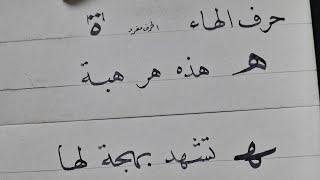 حرف الهاء الحرف مفرد ه
ه هذه هر هبة
ه تشهد بهجة لها